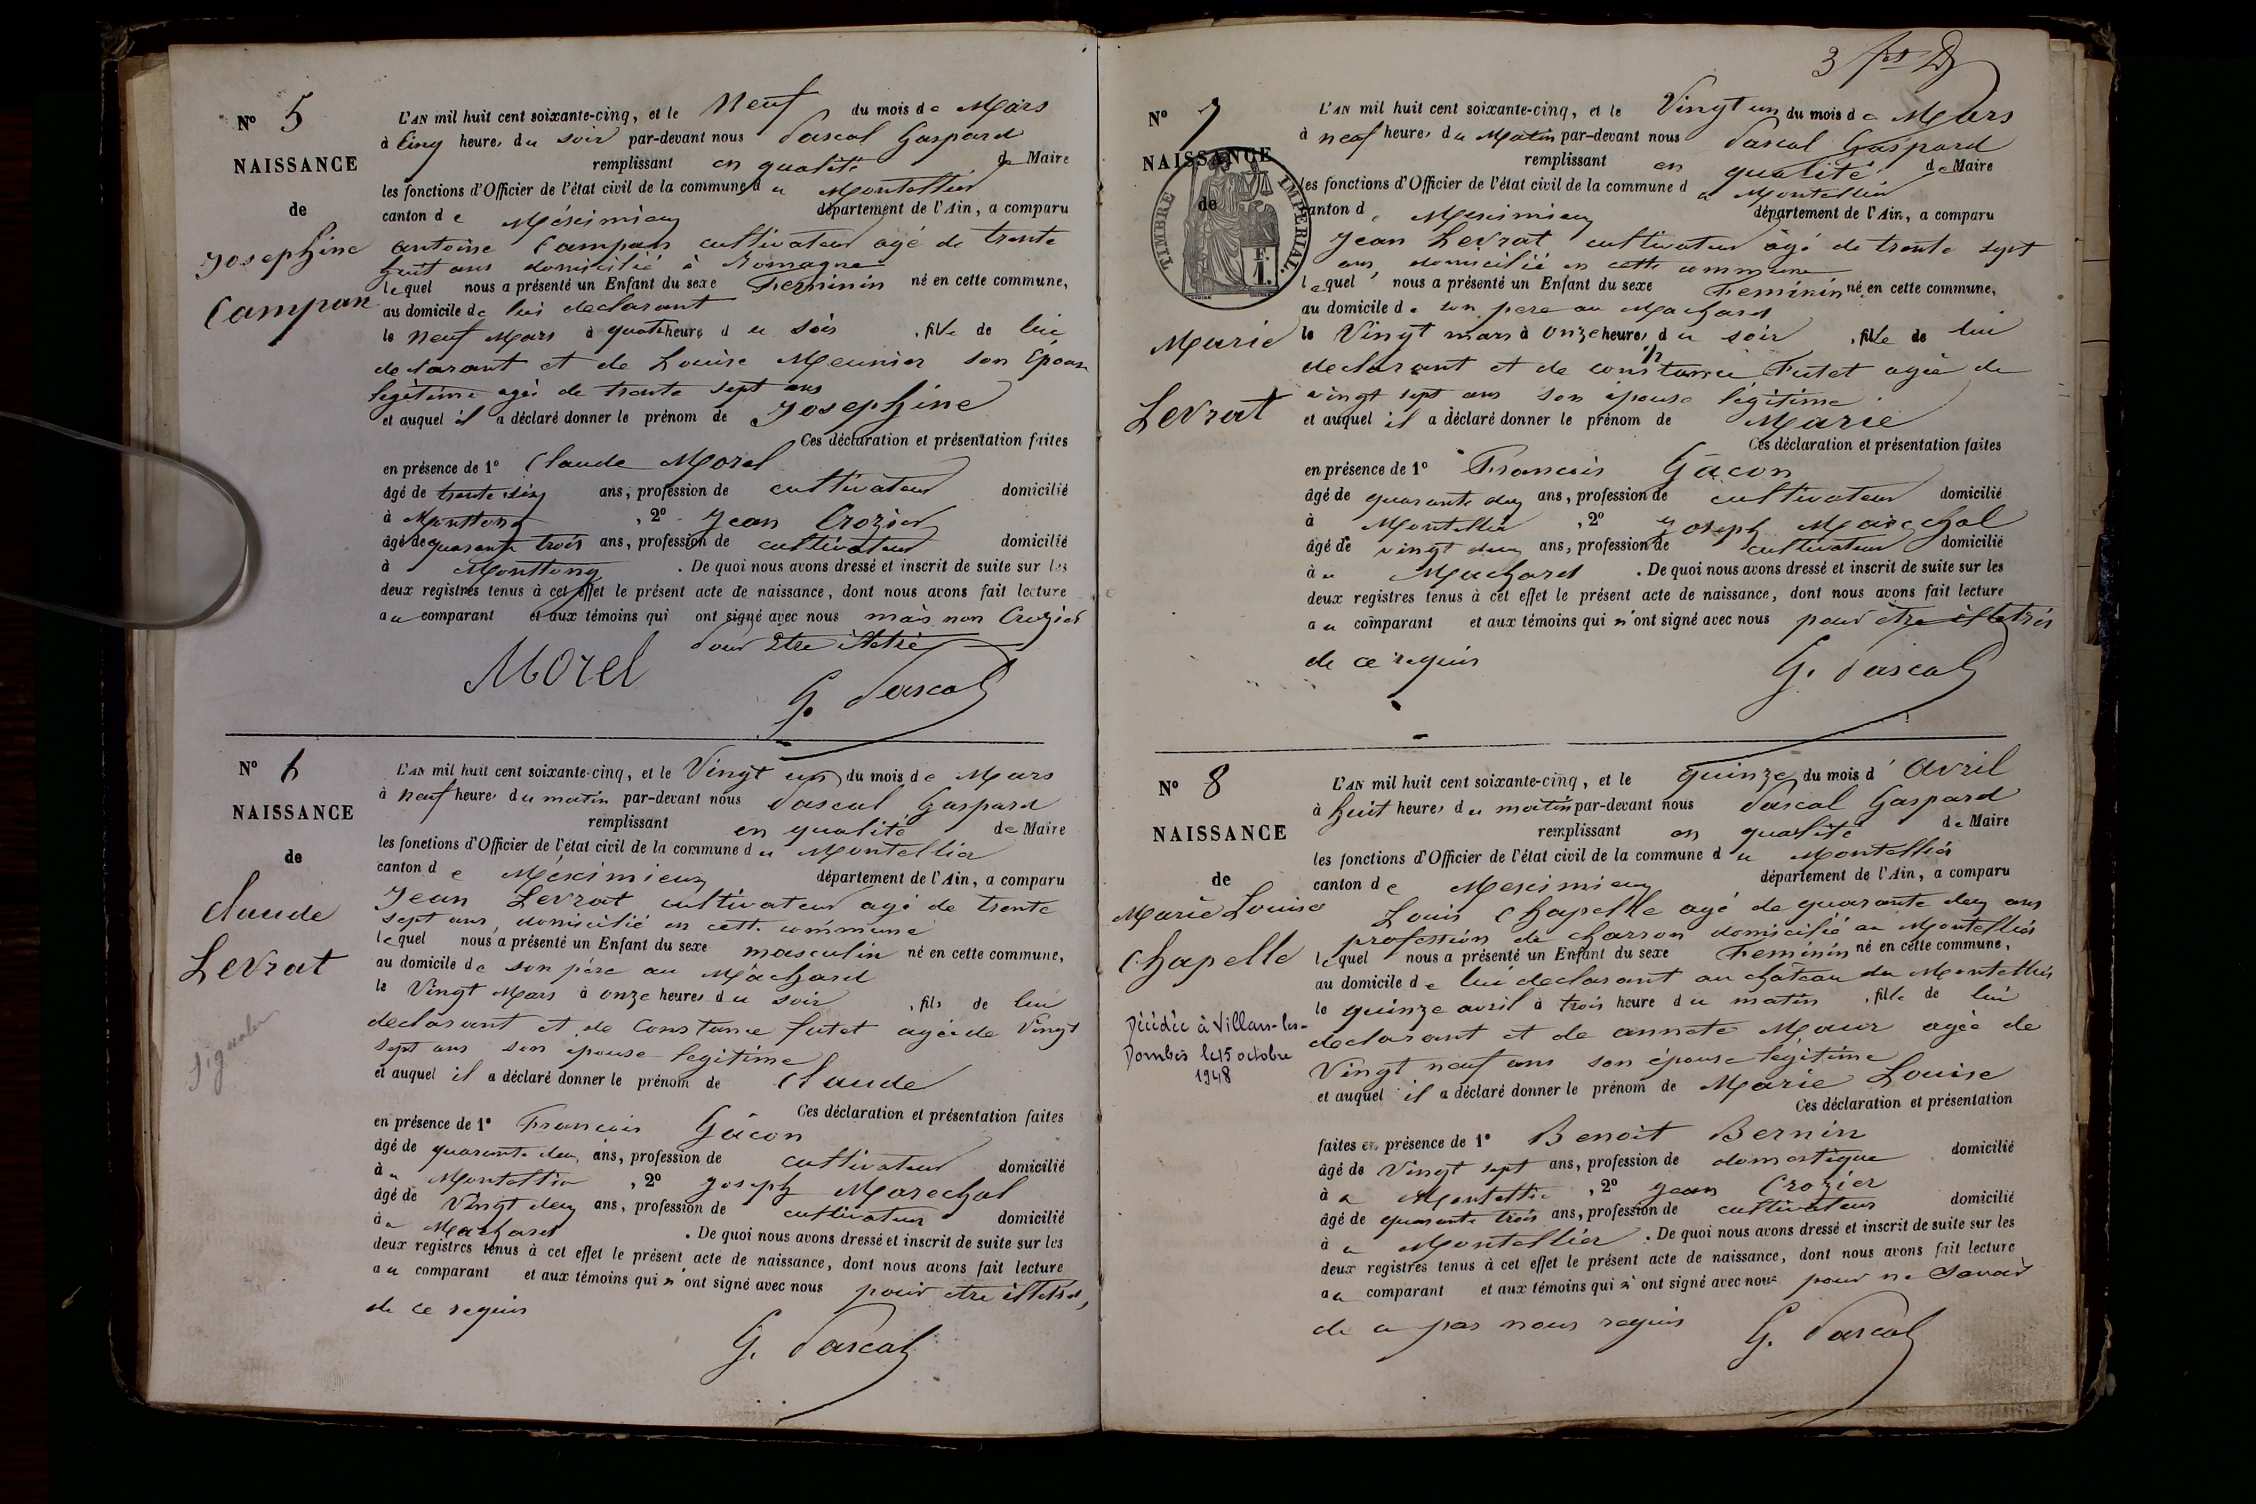 N° 5
NAISSANCE
de
Josephine
Campan
L'AN mil huit cent soixante-cinq, et le Neuf du mois de Mars
à Cinq heures du soir par-devant nous Pascal Gaspard
remplissant en qualité de Maire
les fonctions d'Officier de l'état civil de la commune du Montellier
canton de Méximieux département de l'Ain, a comparu
antoine Campan cultivateur agé de trente
huit ans domicilié à Romagne
lequel nous a présenté un Enfant du sexe Feminin né en cette commune,
au domicile de lui declarant
le neuf Mars à quatre heures du soir, fille de lui
declarant et de Louise Meunier son Epouse
legitime agée de trente sept ans
et auquel il a déclaré donner le prénom de Josephine
Ces déclaration et présentation faites
en présence de 1° Claude Morel
âgé de trente six ans, profession de cultivateur domicilié
à , 2° Jean Crozier
âgé de quarante trois ans, profession de cultivateur domicilié
à . De quoi nous avons dressé et inscrit de suite sur les
deux registres tenus à cet effet le présent acte de naissance, dont nous avons fait lecture
au comparant et aux témoins qui ont signé avec nous mais non Crozier
pour être iletré
Morel
G. Pascal
N° 6
NAISSANCE
de
Claude
Levrat
Signaler
L'AN mil huit cent soixante-cinq, et le Vingt un du mois de Mars
à neuf heures du matin par-devant nous Pascal Gaspard
remplissant en qualité de Maire
les fonctions d'Officier de l'état civil de la commune du Montellier
canton de Méximieux département de l'Ain, a comparu
Jean Levrat cultivateur agé de trente
sept ans, domicilié en cette commune
lequel nous a présenté un Enfant du sexe masculin né en cette commune,
au domicile de son père au Mâchard
le Vingt Mars à onze heures du soir, fils de lui
declarant et de Constance futet agée de Vingt
sept ans son épouse legitime
et auquel il a déclaré donner le prénom de Claude
Ces déclaration et présentation faites
en présence de 1° Francois Gâcon
âgé de quarante deux ans, profession de cultivateur domicilié
au Montellier, 2° Joseph Marechal
âgé de Vingt deux ans, profession de cultivateur domicilié
au Machard. De quoi nous avons dressé et inscrit de suite sur les
deux registres tenus à cet effet le présent acte de naissance, dont nous avons fait lecture
au comparant et aux témoins qui n'ont signé avec nous pour etre illetrés,
de ce requis
G. Pascal
3
N° 7
NAISSANCE
de
TIMBRE IMPERIAL.
1 F.
Marie
Levrat
L'AN mil huit cent soixante-cinq, et le Vingt un du mois de Mars
à neuf heures du Matin par-devant nous Pascal Gaspard
remplissant en qualité de Maire
les fonctions d'Officier de l'état civil de la commune du Montellier
canton de Meximieux département de l'Ain, a comparu
Jean Levrat cultivateur âgé de trente sept
ans, domicilié en cette commune
lequel nous a présenté un Enfant du sexe Feminin né en cette commune,
au domicile de son pere au Machard
le Vingt mars à onze heures 1/2 du soir, fille de lui
declarant et de constance Futet agée de
vingt sept ans son épouse légitime
et auquel il a déclaré donner le prénom de Marie
Ces déclaration et présentation faites
en présence de 1° Francois Gâcon
âgé de quarante deux ans, profession de cultivateur domicilié
à Montellier, 2° Joseph Marechal
âgé de vingt deux ans, profession de cultivateur domicilié
à u Machard. De quoi nous avons dressé et inscrit de suite sur les
deux registres tenus à cet effet le présent acte de naissance, dont nous avons fait lecture
au comparant et aux témoins qui n'ont signé avec nous pour être iletrés
de ce requis
G. Pascal
N° 8
NAISSANCE
de
Marie Louise
Chapelle
Décédée à Villars-les-
Dombes le 15 octobre
1948
L'AN mil huit cent soixante-cinq, et le quinze du mois d'Avril
à huit heures du matin par-devant nous Pascal Gaspard
remplissant en qualité de Maire
les fonctions d'Officier de l'état civil de la commune du Montellier
canton de Meximieux département de l'Ain, a comparu
Louis Chapelle agé de quarante deux ans
profession de charron domicilié au Montellier
lequel nous a présenté un Enfant du sexe Feminin né en cette commune,
au domicile de lui declarant au château du Montellier
le quinze avril à trois heure du matin, fille de lui
declarant et de annete Maur agée de
Vingt neuf ans son épouse légitime
et auquel il a déclaré donner le prénom de Marie Louise
Ces déclaration et présentation
faites en présence de 1° Benoit Bernin
âgé de Vingt sept ans, profession de domestique domicilié
à u Montellier, 2° Jean Crozier
âgé de quarante trois ans, profession de cultivateur domicilié
à u Montellier. De quoi nous avons dressé et inscrit de suite sur les
deux registres tenus à cet effet le présent acte de naissance, dont nous avons fait lecture
au comparant et aux témoins qui n'ont signé avec nous pour ne Savoir
de ce pas nous requis
G. Pascal